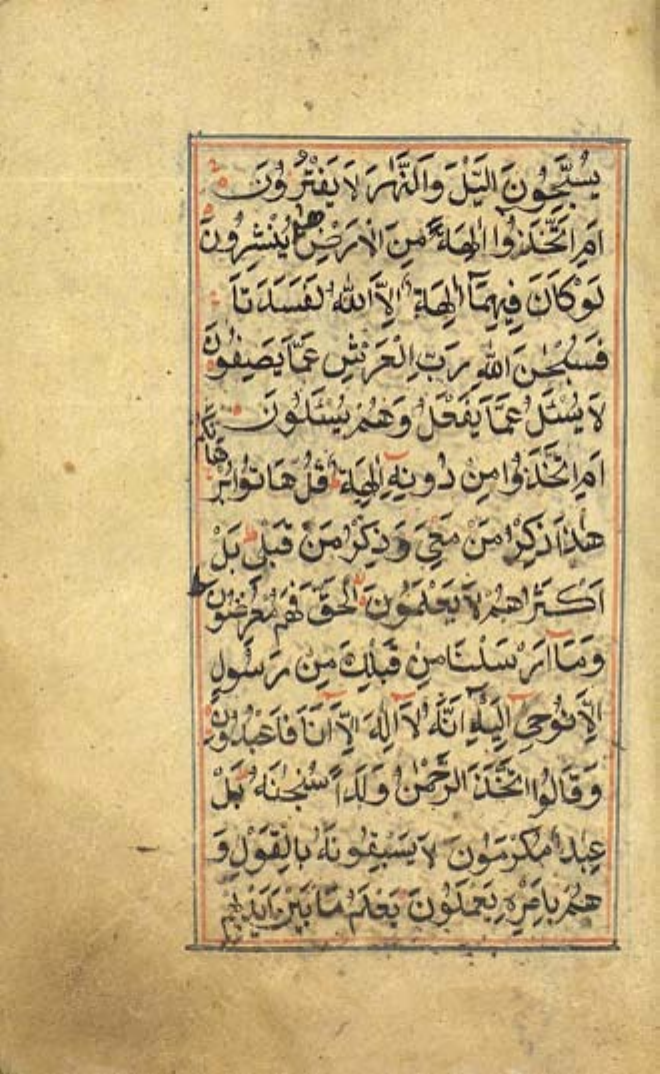 يُسَبِّحُونَ الَّيْلَ وَالنَّهَارَ لَا يَفْتُرُونَ
اَمِ اتَّخَذُوا اٰلِهَةً مِنَ الْاَرْضِ هُمْ يُنْشِرُونَ
لَوْ كَانَ فِيهِمَآ اٰلِهَةٌ اِلَّا اللّٰهُ لَفَسَدَتَا
فَسُبْحٰنَ اللّٰهِ رَبِّ الْعَرْشِ عَمَّا يَصِفُونَ
لَا يُسْئَلُ عَمَّا يَفْعَلُ وَهُمْ يُسْئَلُونَ
اَمِ اتَّخَذُوا مِنْ دُونِهٖٓ اٰلِهَةً قُلْ هَاتُوا بُرْهَانَكُمْ
هٰذَا ذِكْرُ مَنْ مَعِيَ وَذِكْرُ مَنْ قَبْلِي بَلْ
اَكْثَرُهُمْ لَا يَعْلَمُونَ الْحَقَّ فَهُمْ مُعْرِضُونَ
وَمَآ اَرْسَلْنَا مِنْ قَبْلِكَ مِنْ رَسُولٍ
اِلَّا نُوحِي اِلَيْهِ اَنَّهُ لَآ اِلٰهَ اِلَّآ اَنَا فَاعْبُدُونِ
وَقَالُوا اتَّخَذَ الرَّحْمٰنُ وَلَدًا سُبْحٰنَهُ بَلْ
عِبَادٌ مُكْرَمُونَ لَا يَسْبِقُونَهُ بِالْقَوْلِ وَ
هُمْ بِاَمْرِهٖ يَعْمَلُونَ يَعْلَمُ مَا بَيْنَ اَيْدِيهِمْ